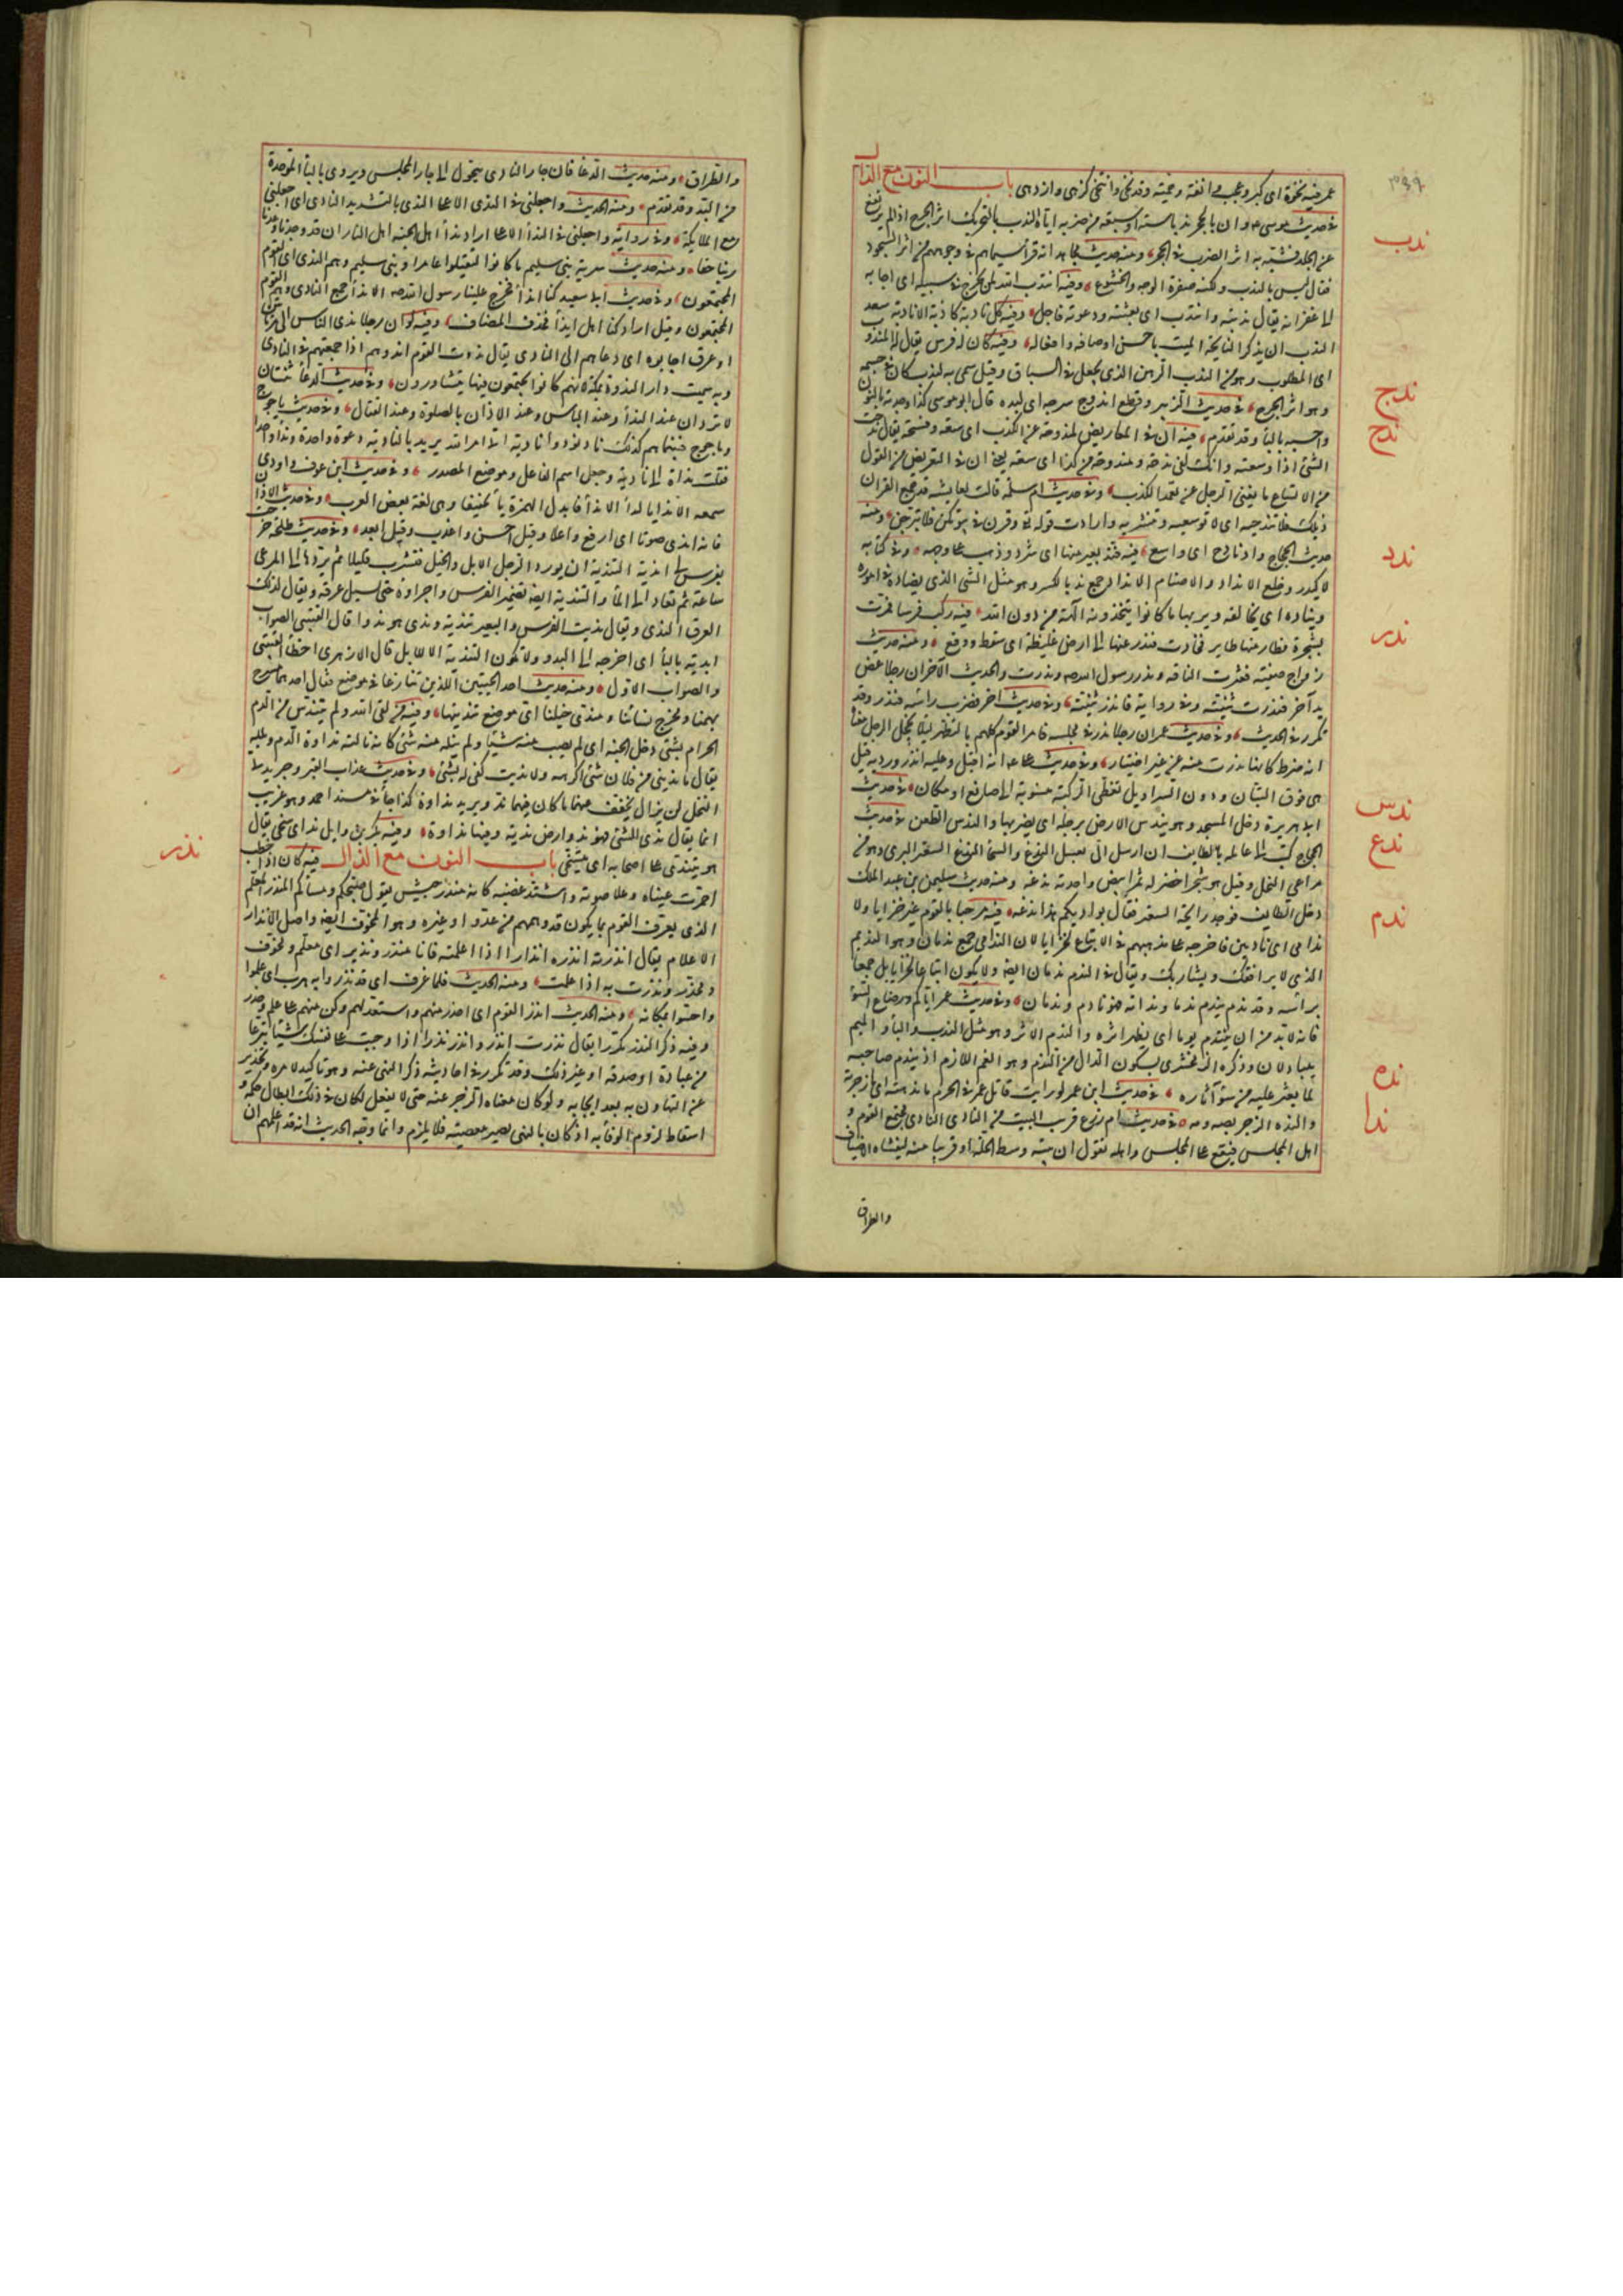 عمر فيه نخوة اى كبر وعجب وانفة وحمية وقد نخى وانتخى كزهى وازدهى باب النون مع الدال
فى حديث موسى وان بالحجر ندبا ستة او سبعة من ضربه اياه الندب بالتحريك اثر الجرح اذا لم يرتفع
عن الجلد فشبه به اثر الضرب فى الحجر ومنه حديث مجاهد انه قرأ سيماهم فى وجوههم من اثر السجود
فقال ليس بالندب ولكنه صفرة الوجه والخشوع وفيه انتدب الله لمن يخرج فى سبيله اى اجابه
الى غفرانه يقال ندبته فانتدب اى بعثته ودعوته فاجاب وفيه كل نادبة كاذبة الا نادبة سعد
الندب ان يذكر النايحة الميت باحسن اوصافه وافعاله وفيه كان له فرس يقال له المندوب
اى المطلوب وهو من الندب الرهن الذى يجعل فى السباق وقيل سمى به لندب كان فى جسمه
وهو اثر الجرح فى حديث الزبير وقطع اندوج سرجه اى لبده قال ابو موسى كذا وجدته بالنون
واحسبه بالباء وقد تقدم فيه ان فى المعاريض لمندوحة عن الكذب اى سعة وفسحة يقال ندحت
الشئ اذا وسعته وانك لفى ندحة ومندوحة من كذا اى سعة يعنى ان فى التعريض من القول
من الاتساع ما يغنى الرجل عن تعمد الكذب وفى حديث ام سلمة قالت لعايشة قد جمع القران
ذيلك فلا تندحيه اى لا توسعيه وتنشريه وارادت قوله تع وقرن فى بيوتكن ولا تبرجن ومنه
حديث الحجاج واد نادح اى واسع فيه فند بعير منها اى شرد وذهب على وجهه وفى كتابه
لاكيدر وخلع الانداد والاصنام الانداد جمع ند بالكسر وهو مثل الشئ الذى يضاده فى اموره
ويناده اى يخالفه ويريد بها ما كانوا يتخذونه الهة من دون الله فيه ركب فرسا فمرت
بشجرة فطار منها طاير فحادت فندر عنها الى ارض غليظة اى سقط ووقع ومنه حديث
زواج صفية فعثرت الناقة وندر رسول الله صه وندرت والحديث الآخر ان رجلا عض
يد آخر فندرت ثنيته وفى رواية فاندر ثنيته وفى حديث اخر فضرب راسه فندر وقد
تكرر فى الحديث وفى حديث عمر ان رجلا ندر فى مجلسه فامر القوم كلهم بالتطهر لئلا يخجل الرجل معناه
انه ضرط كانها ندرت منه عن غير اختيار وفى حديث على انه اقبل وعليه اندروردية قيل
هى فوق التبان ودون السراويل تغطى الركبة منسوبة الى صانع او مكان فى حديث
ابى هريرة دخل المسجد وهو يندس الارض برجله اى يضربها والندس الطعن فى حديث
الحجاج كتب الى عامله بالطايف ان ارسل الى بعسل الندغ والسحا الندغ السعتر البرى وهو من
مراعى النحل وقيل هو شجر اخضر له ثمر ابيض واحدته ندغة ومنه حديث سليمن بن عبد الملك
دخل الطايف فوجد رايحة السعتر فقال بواديكم هذا ندغة فيه مرحبا بالقوم غير خزايا ولا
ندامى اى نادمين فاخرجه على مذهبهم فى الاتباع لخزايا لان الندامى جمع ندمان وهو النديم
الذى يرافقك ويشاربك ويقال فى الندم ندمان ايض ولا يكون اتباعا لخزايا بل جمعا
براسه وقد ندم يندم ندما وندامة فهو نادم وندمان وفى حديث عمر اياكم ورضاع السوء
فانه لابد من ان ينتدم يوما اى يظهر اثره والندم الاثر وهو مثل الندب والباء والميم
يتبادلان وذكره الزمخشرى بسكون الدال من الندم وهو الغم اللازم اذ يندم صاحبه
لما يعثر عليه من سوء آثاره فى حديث ابن عمر لو رايت قاتل عمر فى الحرم ما ندهته اى ما زجرته
والنده الزجر بصه ومه فى حديث ام زرع قريب البيت من النادى النادى مجتمع القوم و
اهل المجلس فيقع على المجلس واهله تقول ان بيته وسط الحلة او قريبا منه ليغشاه الاضياف
والطراق
ندب
ندج
ندح
ندد
ندر
ندس
ندغ
ندم
نده
ندا
والطراق ومنه حديث الدعا فان جار النادى يتحول اى جار المجلس ويروى بالباء الموحدة
من البدو وقد تقدم ومنه الحديث واجعلنى فى الندى الاعلى الندى بالتشديد النادى اى اجعلنى
مع الملايكة وفى رواية واجعلنى فى الندا الاعلى اراد ندا اهل الجنة اهل النار ان قد وجدنا ما وعدنا
ربنا حقا ومنه حديث سرية بنى سليم ما كانوا ليقتلوا عامرا وبنى سليم وهم الندى اى القوم
المجتمعون وفى حديث ابى سعيد كنا انداء فخرج علينا رسول الله صه الانداء جمع النادى وهم القوم
المجتمعون وقيل اراد كنا اهل انداء فحذف المضاف وفيه لو ان رجلا ندى الناس الى مرماتين
او عرق اجابوه اى دعاهم الى النادى يقال ندوت القوم اندوهم اذا جمعتهم فى النادى
وبه سميت دار الندوة بمكة لانهم كانوا يجتمعون فيها يتشاورون وفى حديث الدعا ثنتان
لا تردان عند الندا وعند الباس وعند الاذان بالصلوة وعند القتال وفى حديث ياجوج
وماجوج فبينما هم كذلك نادى نودوا نادية اتى امر الله يريد بالنادية دعوة واحدة ونداء واحدا
فقلب نداة الى نادية وجعل اسم الفاعل موضع المصدر وفى حديث ابن عوف واودى
سمعه الا ندايا اراد الا نداء فابدل الهمزة ياء تخفيفا وهى لغة بعض العرب وفى حديث الاذان
فانه اندى صوتا اى ارفع واعلا وقيل احسن واعذب وقيل ابعد وفى حديث طلحة خرجت
بفرس لى اندية التندية ان يورد الرجل الابل والخيل فتشرب قليلا ثم يردها الى المرعى
ساعة ثم تعاد الى الماء والتندية ايض تضمير الفرس واجراؤه حتى يسيل عرقه ويقال لذلك
العرق الندى ويقال نديت الفرس والبعير تندية وندى هو ندوا قال القتيبى الصواب
ابديه بالباء اى اخرجه الى البدو ولا تكون التندية الا للابل قال الازهرى اخطأ القتيبى
والصواب الاول ومنه حديث احد الحيين اللذين تنازعا فى موضع فقال احدهما مسرح
بهمنا ومخرج نسائنا ومندى خيلنا اى موضع تنديتها وفيه من لقى الله ولم يتندس من الدم
الحرام بشئ دخل الجنة اى لم يصب منه شيئا ولم ينله منه شئ كانه نالته نداوة الدم وبلله
يقال ما ندينى من فلان شئ اكرهه ولا نديت كفى له بشئ وفى حديث عذاب القبر وجريدتى
النخل لن يزال يخفف عنهما ما كان فيهما ندو يريد نداوة كذا جاء فى مسند احمد وهو غريب
انما يقال ندى الشئ فهو ند وارض ندية وفيها نداوة وفيه بكر بن وايل ند اى سخى يقال
هو يتندى على اصحابه اى يتسخى باب النون مع الذال فيه كان اذا خطب
احمرت عيناه وعلا صوته واشتد غضبه كانه منذر جيش يقول صبحكم ومساكم المنذر المعلم
الذى يعرف القوم بما يكون قد دهمهم من عدو او غيره وهو المخوف ايض واصل الانذار
الاعلام يقال انذرته انذره انذارا اذا اعلمته فانا منذر ونذير اى معلم ومخوف
ومحذر ونذرت به اذا علمت ومنه الحديث فلما عرف اى قد نذروا به هرب اى علموا
واحسوا بمكانه ومنه الحديث انذر القوم اى احذر منهم واستعد لهم وكن منهم على علم وحذر
وفيه ذكر النذر مكررا يقال نذرت انذر وانذر نذرا اذا اوجبت على نفسك شيئا تبرعا
من عبادة او صدقة او غير ذلك وقد تكرر فى احاديثه ذكر النهى عنه وهو تاكيد لامره وتحذير
عن التهاون به بعد ايجابه ولو كان معناه الزجر عنه حتى لا يفعل لكان فى ذلك ابطال حكمه و
اسقاط لزوم الوفاء به اذ كان بالنهى يصير معصية فلا يلزم وانما وجه الحديث انه قد اعلمهم ان
نذر